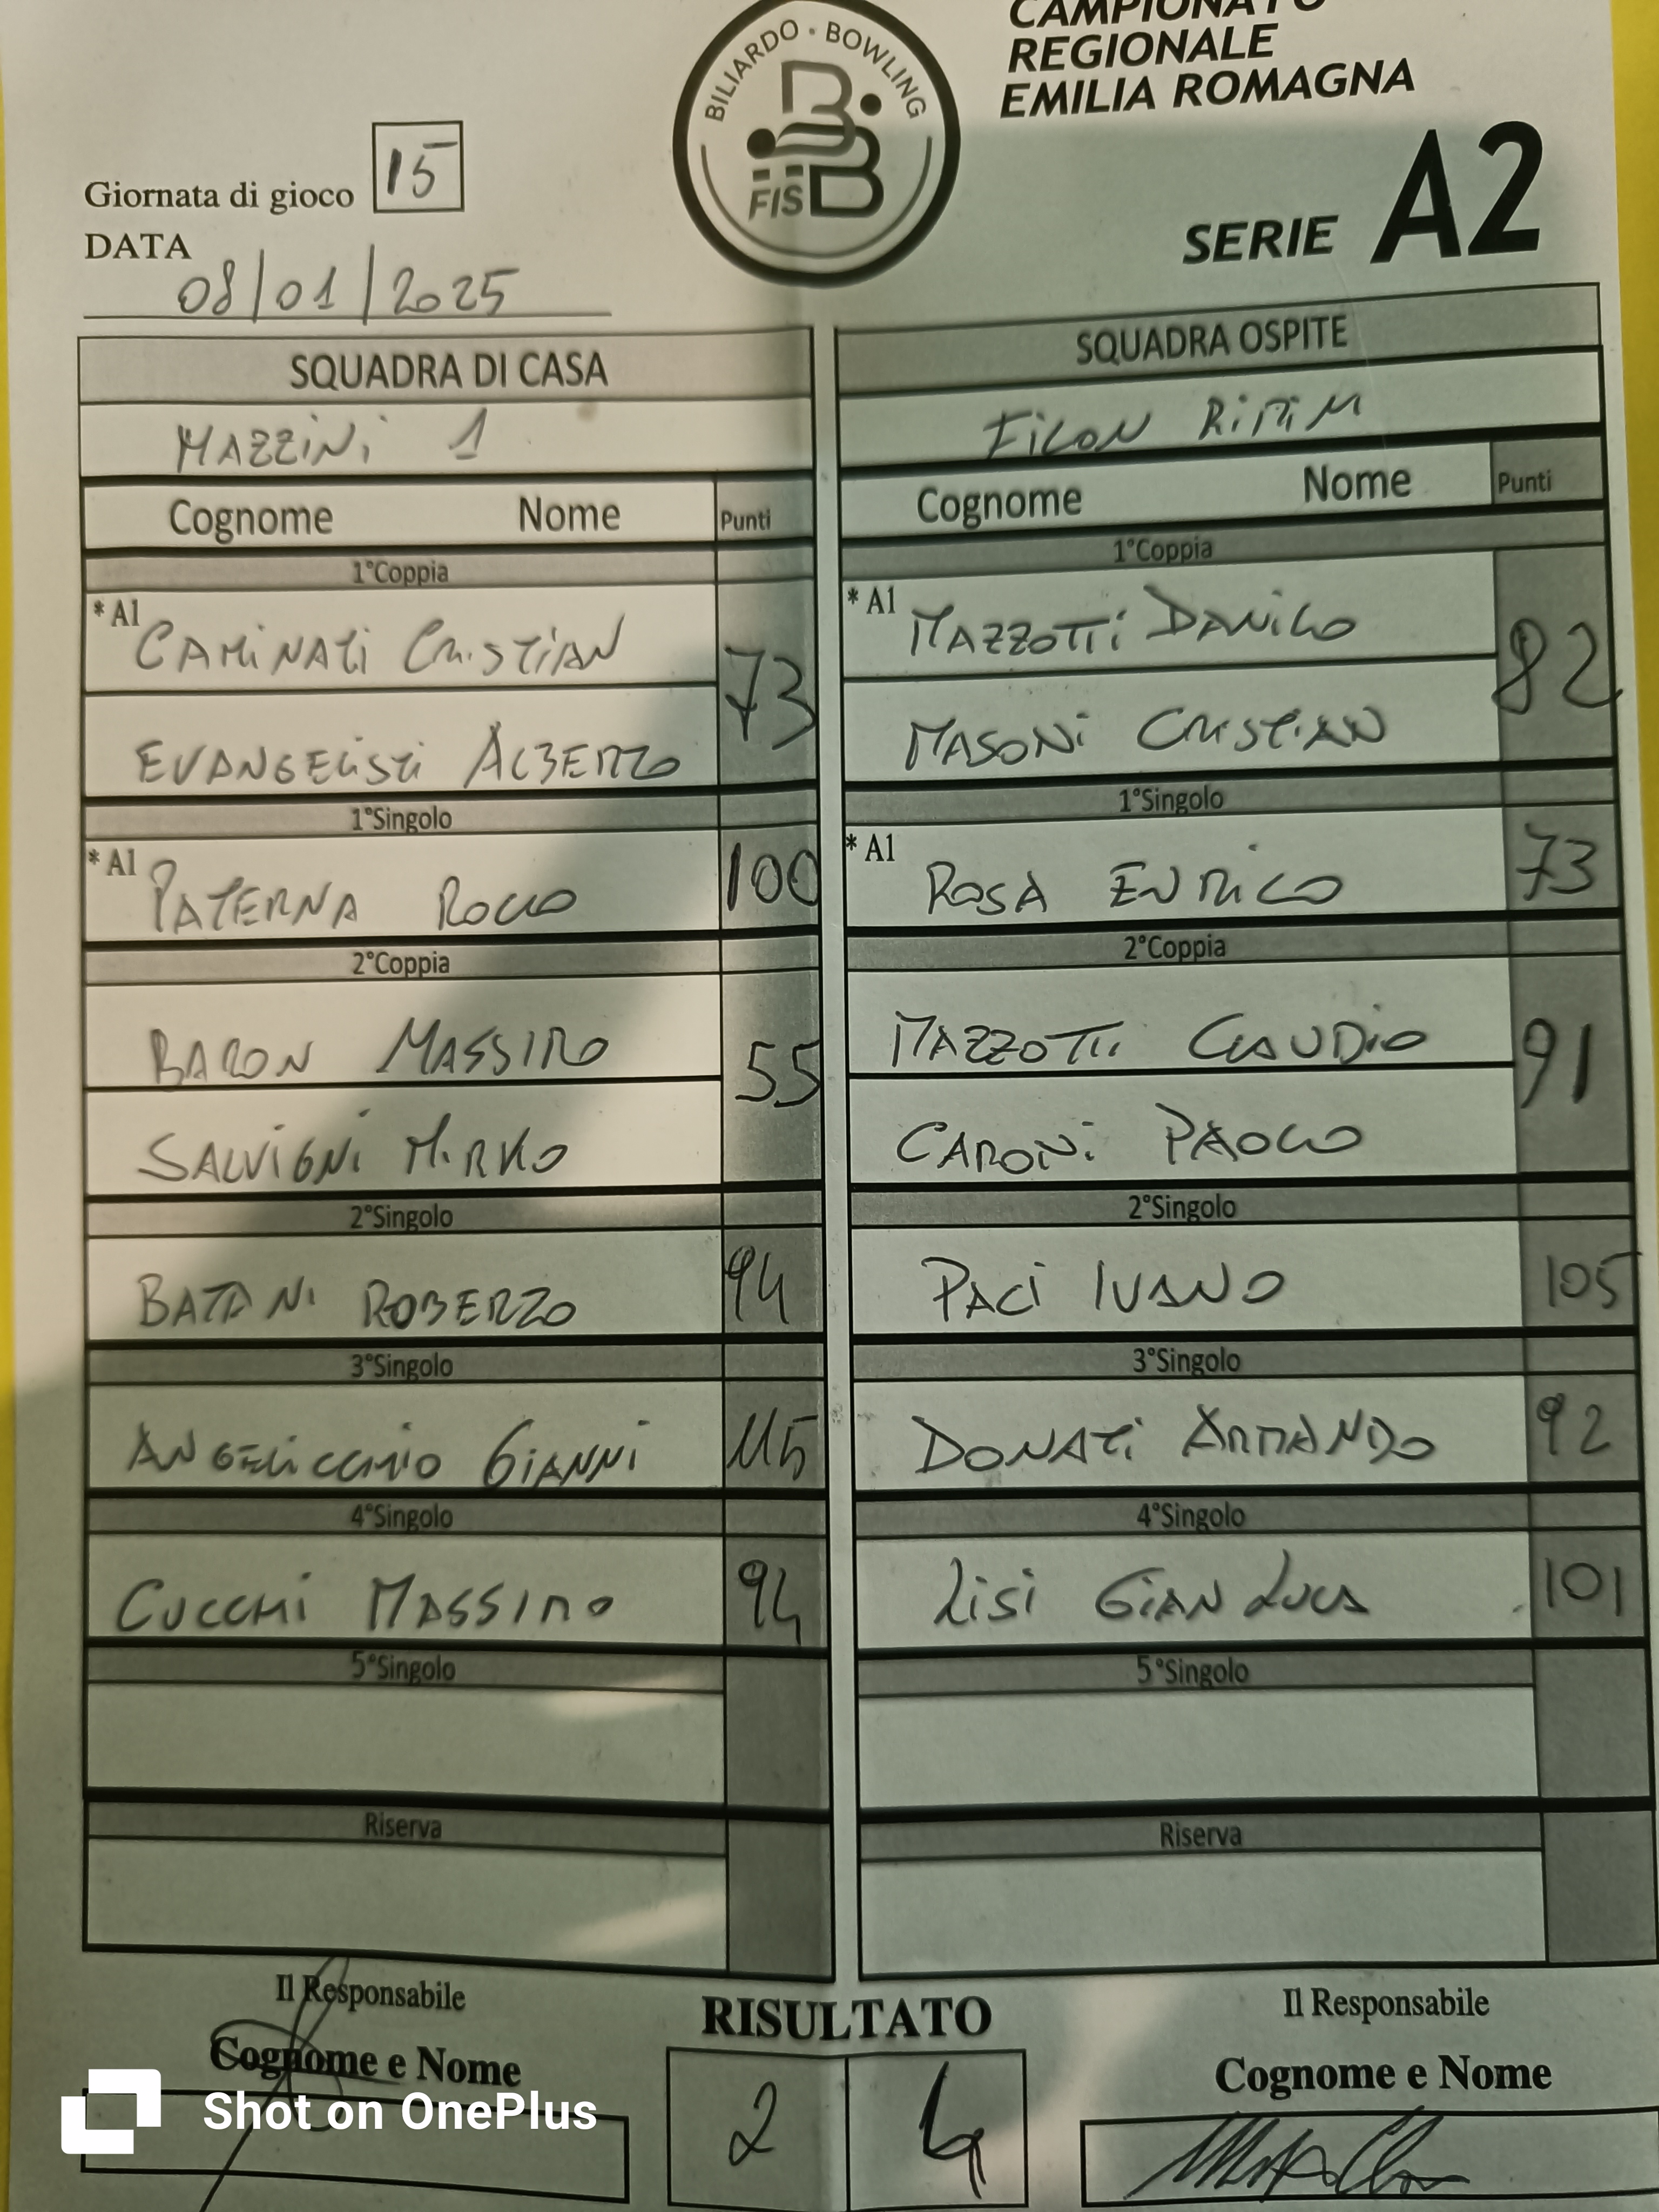 CAMPIONATO
REGIONALE
EMILIA ROMAGNA
SERIE A2
BILIARDO · BOWLING
FISBB
Giornata di gioco 15
DATA
08/01/2025
SQUADRA DI CASA
MAZZINI 1
Cognome Nome Punti
1°Coppia
* A1 CAMINATI CRISTIAN 73
EVANGELISTI ALBERTO
1°Singolo
* A1 PATERNA ROCCO 100
2°Coppia
BARON MASSIMO 55
SALVIGNI MIRKO
2°Singolo
BATANI ROBERTO 94
3°Singolo
ANGELICCHIO GIANNI 115
4°Singolo
CUCCHI MASSIMO 94
5°Singolo
Riserva
SQUADRA OSPITE
FILON RIMINI
Cognome Nome Punti
1°Coppia
* A1 MAZZOTTI DANILO 82
MASONI CRISTIAN
1°Singolo
* A1 ROSA ENRICO 73
2°Coppia
MAZZOTTI CLAUDIO 91
CARONI PAOLO
2°Singolo
PACI IVANO 105
3°Singolo
DONATI ARMANDO 92
4°Singolo
LISI GIAN LUCA 101
5°Singolo
Riserva
Il Responsabile
Cognome e Nome
RISULTATO
2 4
Il Responsabile
Cognome e Nome
Shot on OnePlus